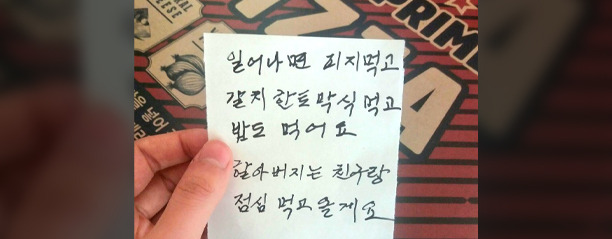 일어나면 피자먹고
갈치 한토막식 먹고
밥도 먹어요
할아버지는 친구랑
점심 먹고 올게요
PRIME